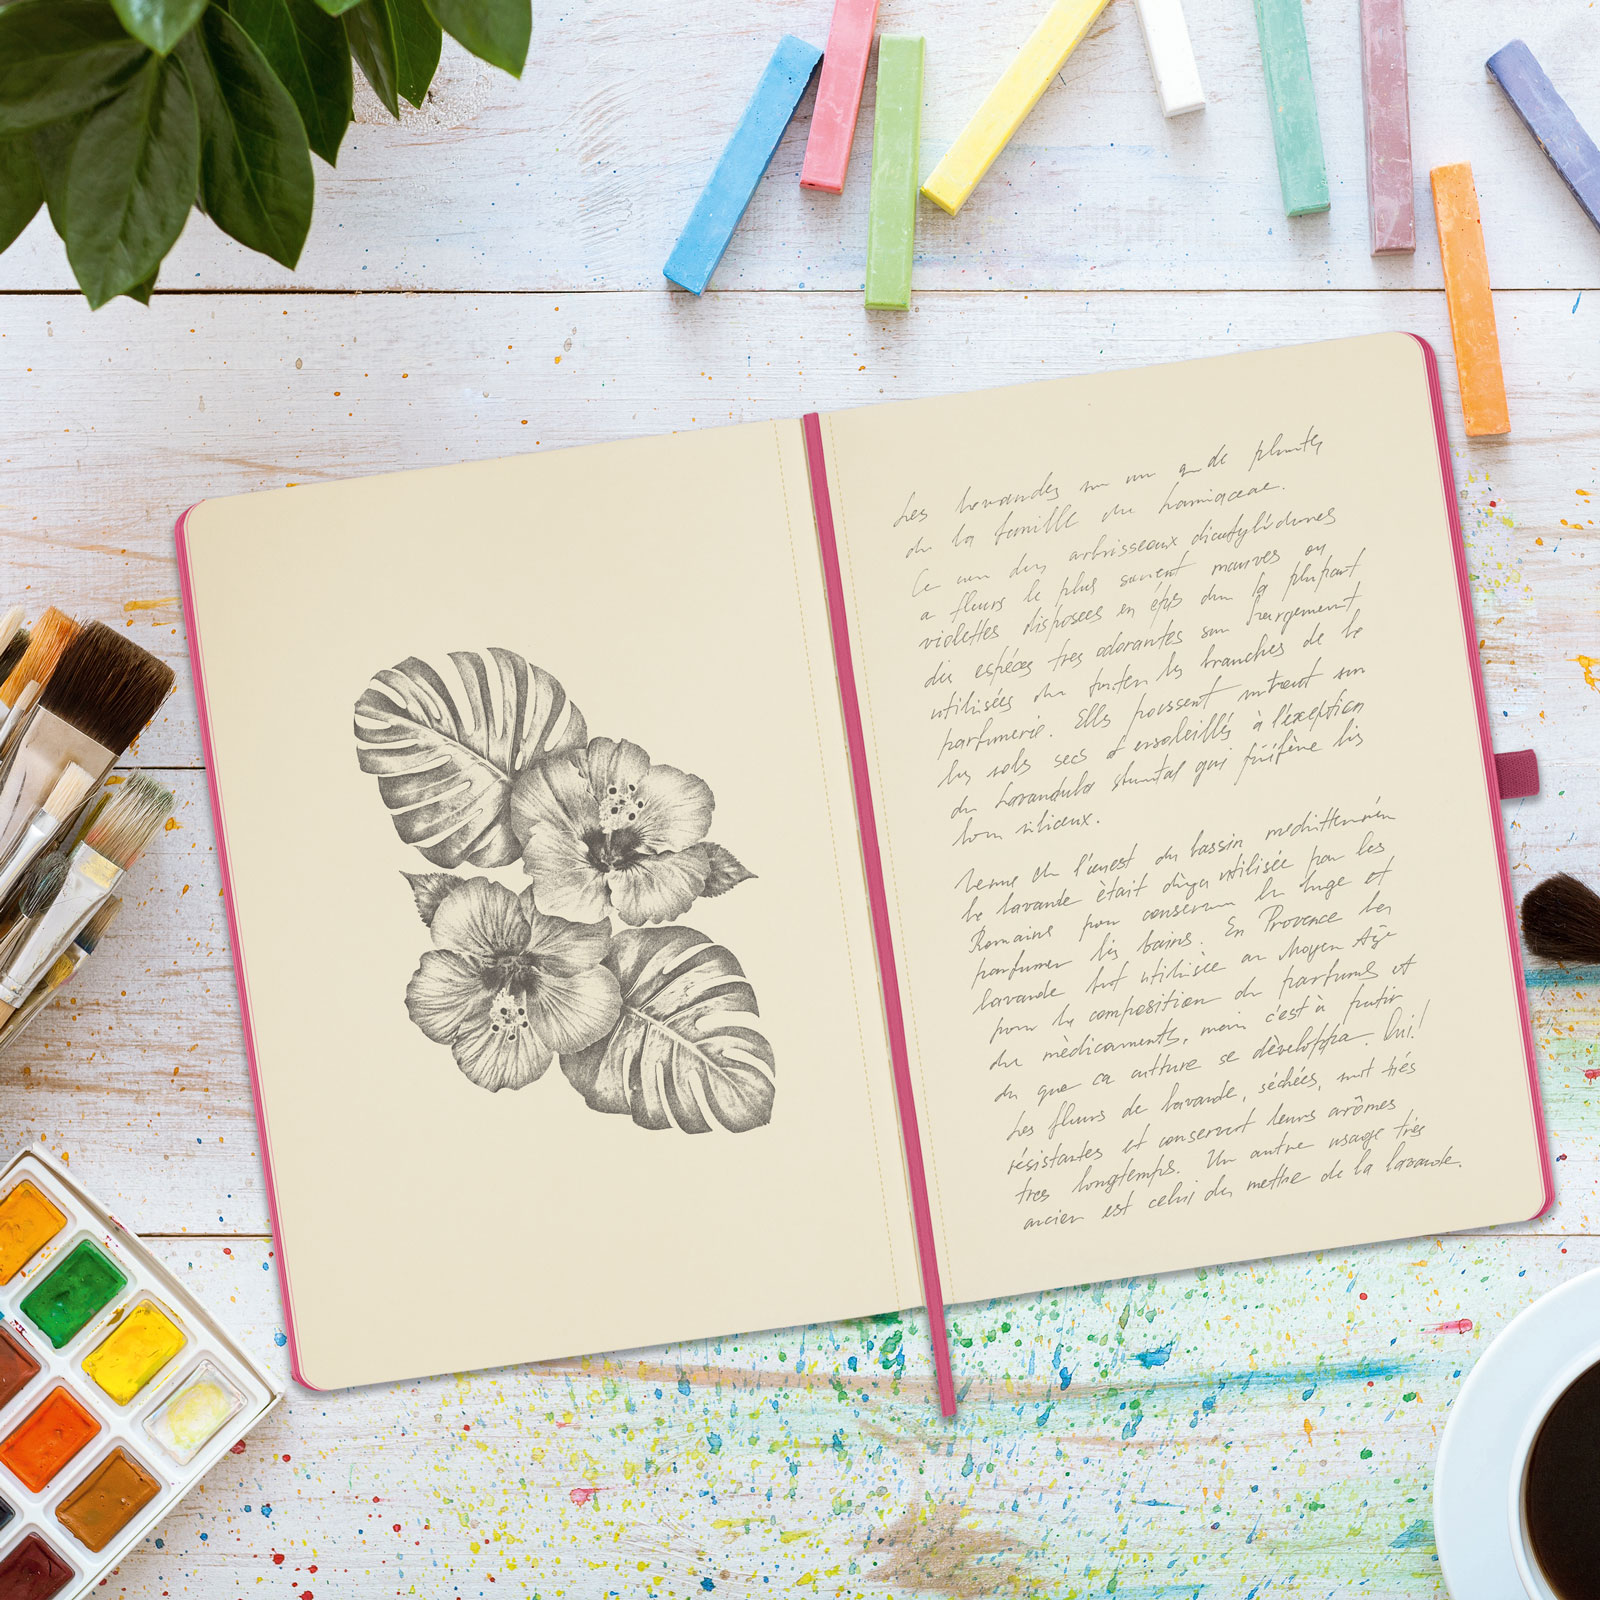 Les lavandes
de la famille du Lamiaceae.
Ce arbrisseaux dicotylédones
a fleurs le plus souvent mauves ou
violettes disposees en épis la plupart
des espèces tres odorantes sur largement
utilisées les branches de la
parfumerie. Elles poussent surtout sur
les sols secs et ensoleillés à l'exception
du Lavandula qui préfère les
sols siliceux.
Venue de l'ouest du bassin mediterranéen
la lavande ètait dèja utilisée par les
Romains pour conserver le linge et
parfumer les bains. En Provence la
lavande fut utilisèe au Moyen Age
pour la composition de parfums et
de mèdicaments, mais c'est à partir
du que sa culture se dèveloppa. Oui!
Les fleurs de lavande, séchées, sont trés
résistantes et conservent leurs arômes
tres longtemps. Un autre usage tres
ancien est celui de mettre de la lavande.